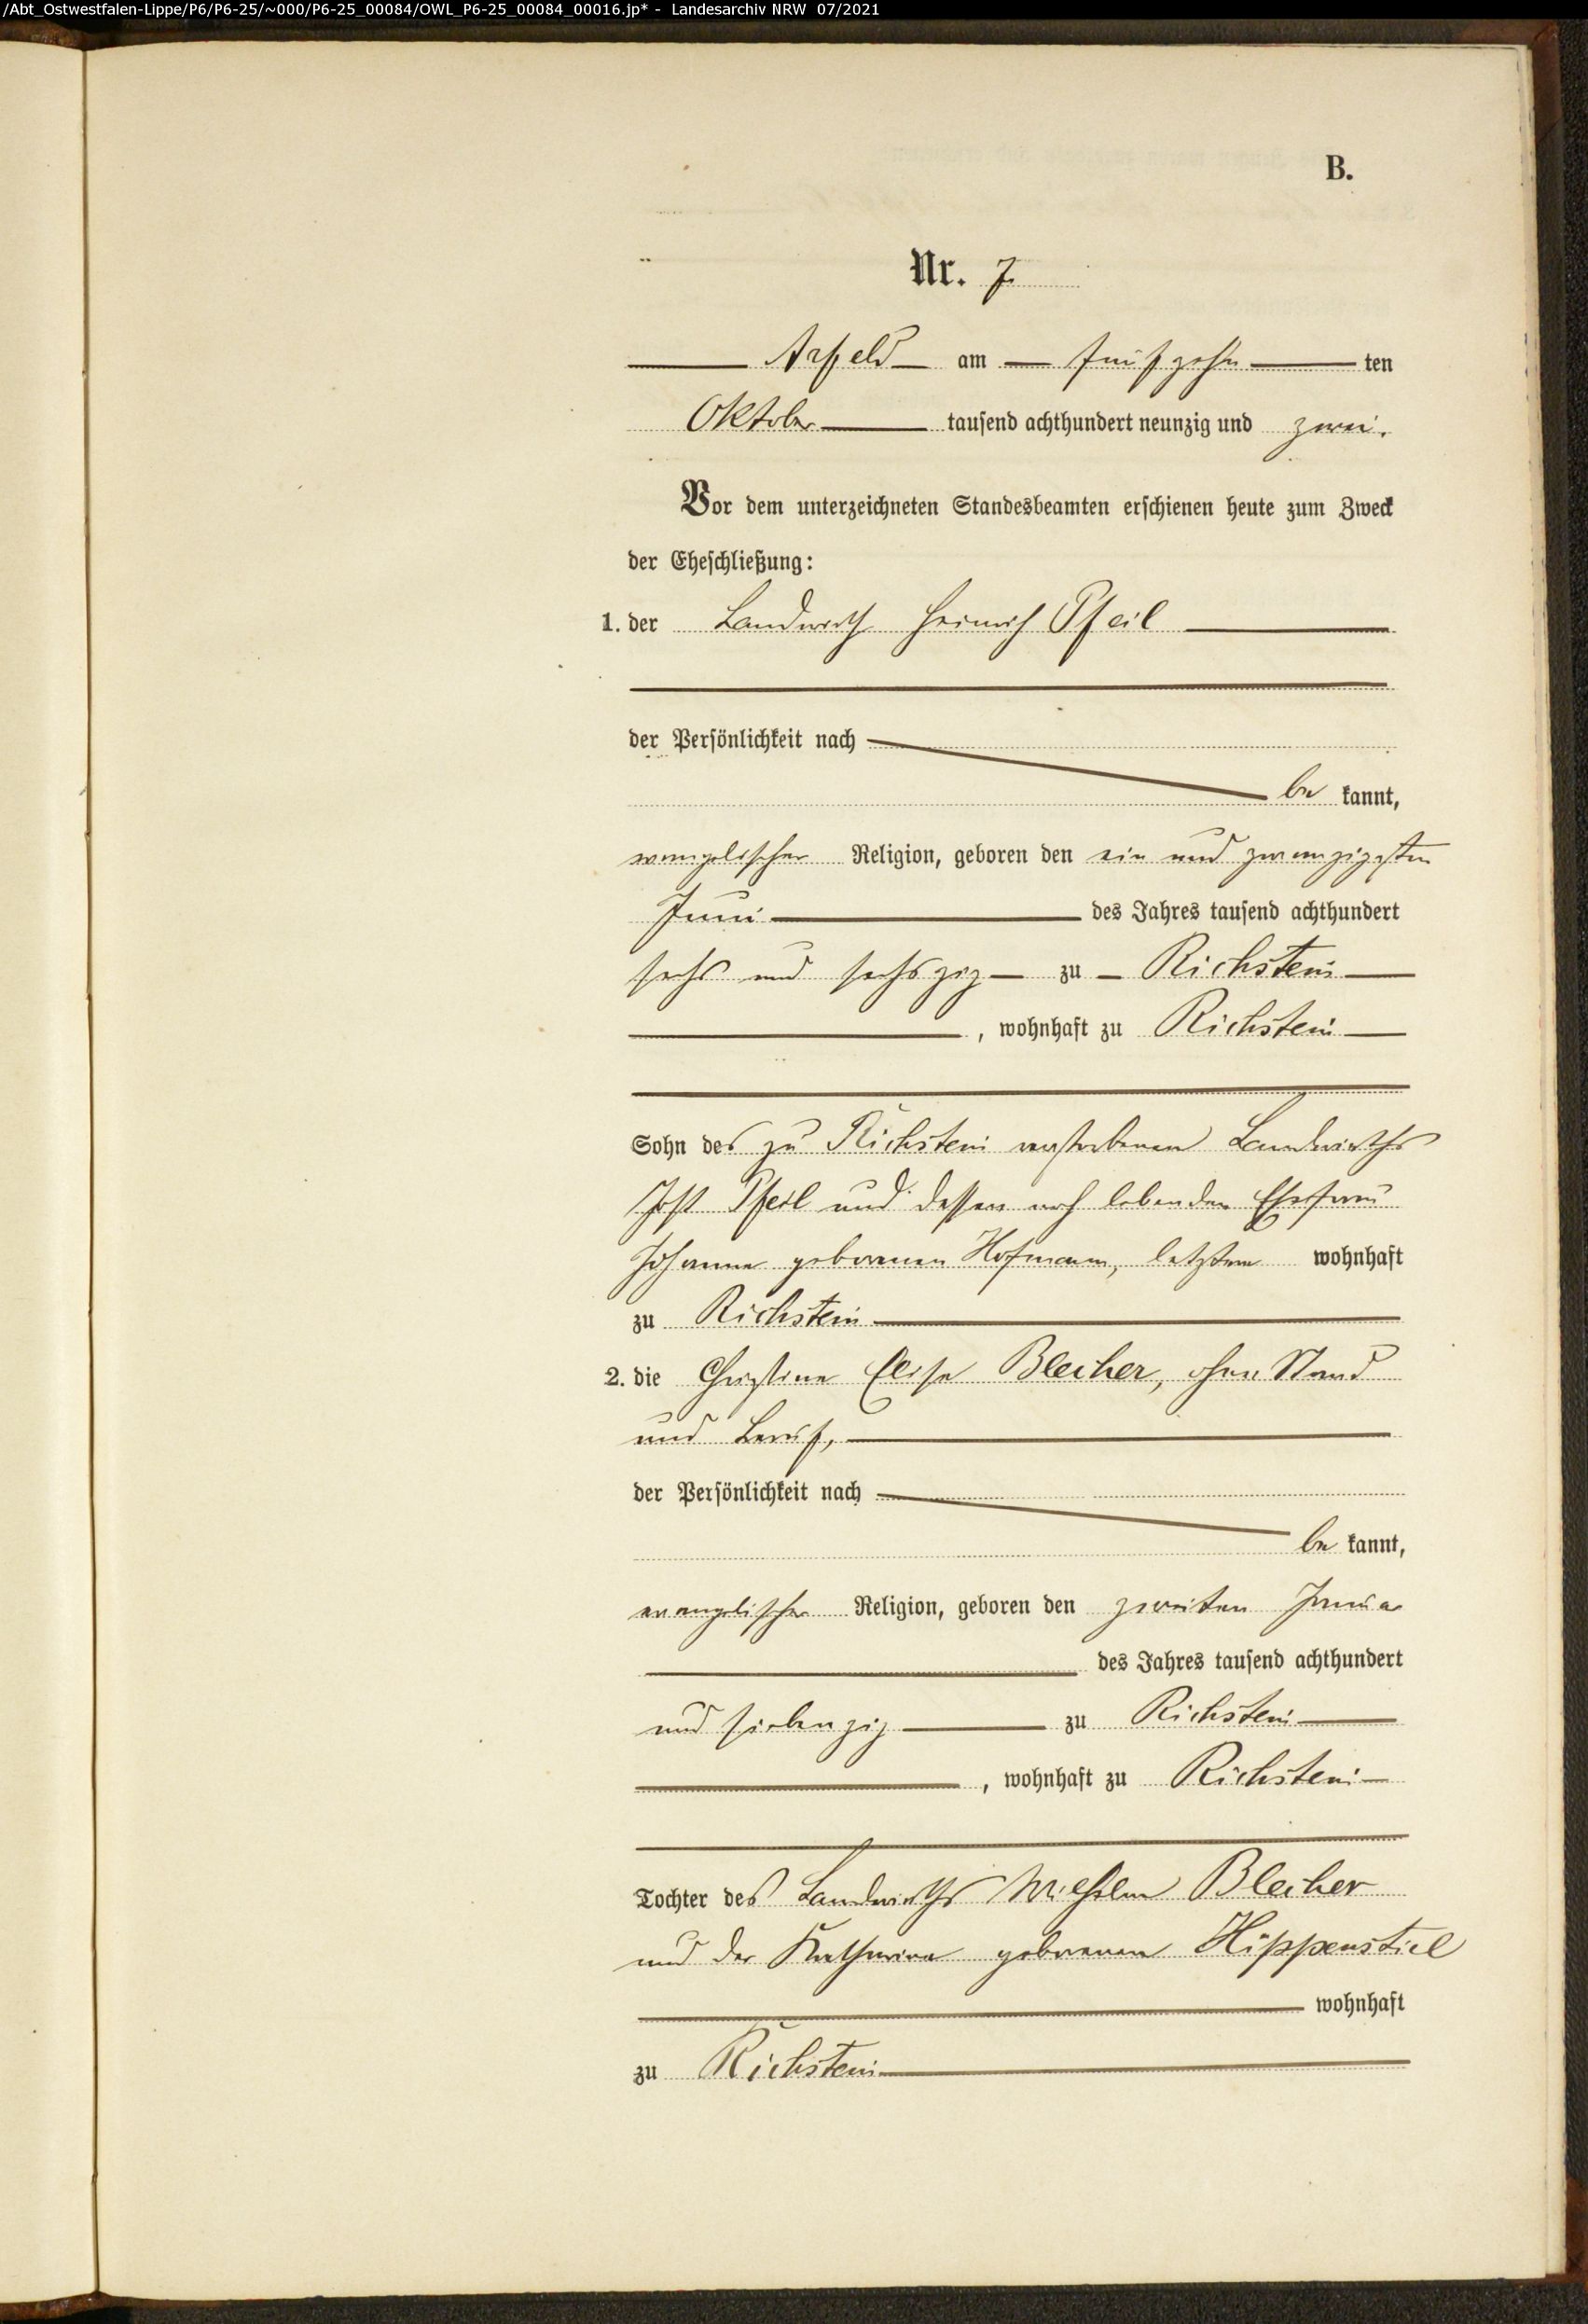 /Abt_Ostwestfalen-Lippe/P6/P6-25/~000/P6-25_00084/OWL_P6-25_00084_00016.jp* - Landesarchiv NRW 07/2021
B.
Nr. 7.
Arfeld am fünfzehnten
Oktober tausend achthundert neunzig und zwei.
Vor dem unterzeichneten Standesbeamten erschienen heute zum Zweck
der Eheschließung:
1. der Landwirth Heinrich Pfeil
der Persönlichkeit nach
bekannt,
evangelischer Religion, geboren den ein und zwanzigsten
Juni des Jahres tausend achthundert
sechs und sechszig zu Richstein
, wohnhaft zu Richstein
Sohn des zu Richstein verstorbenen Landwirths
Jost Pfeil und dessen noch lebenden Ehefrau
Johanne geborenen Hofmann, letztere wohnhaft
zu Richstein
2. die Christine Elise Blecher, ohne Stand
und Beruf,
der Persönlichkeit nach
bekannt,
evangelischer Religion, geboren den zweiten Januar
des Jahres tausend achthundert
und siebenzig zu Richstein
, wohnhaft zu Richstein
Tochter des Landwirths Wilhelm Blecher
und der Katharina geborenen Hippenstiel
wohnhaft
zu Richstein